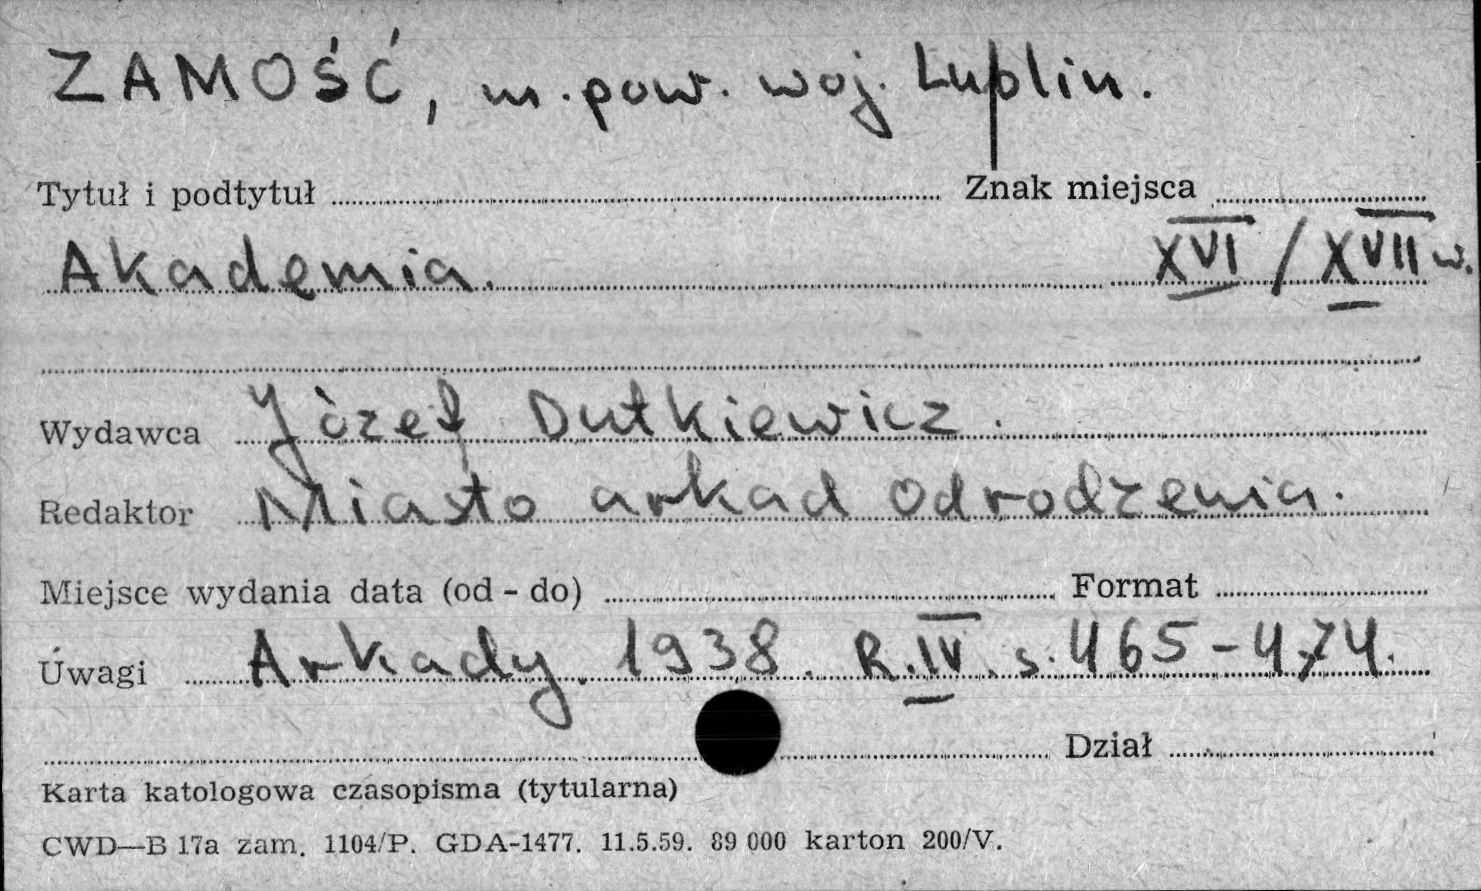 ZAMOŚĆ, m. pow. woj. Lublin.
Tytuł i podtytuł Znak miejsca
Akademia. XVI / XVII w.
Wydawca Józef Dutkiewicz.
Redaktor Miasto arkad odrodzenia.
Miejsce wydania data (od - do) Format
Uwagi Arkady. 1938. R.IV. s. 465-474.
Dział
Karta katologowa czasopisma (tytularna)
CWD—B 17a zam. 1104/P. GDA-1477. 11.5.59. 89 000 karton 200/V.